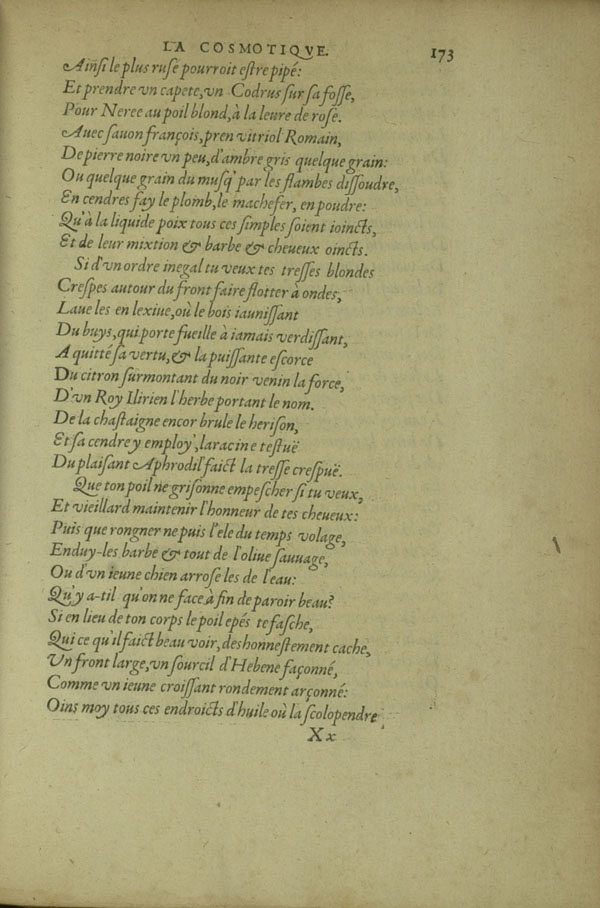 LA COSMOTIQVE. 173
Ainsi le plus rusé pourroit estre pipé:
Et prendre vn capete, vn Codrus sur sa fosse,
Pour Neree au poil blond, à la leure de rose.
Auec sauon françois, pren vitriol Romain,
De pierre noire vn peu, d'ambre gris quelque grain:
Ou quelque grain du musq' par les flambes dissoudre,
En cendres fay le plomb, le machefer, en poudre:
Qu'à la liquide poix tous ces simples soient ioincts,
Et de leur mixtion & barbe & cheueux oincts.
Si d'vn ordre inegal tu veux tes tresses blondes
Crespes autour du front faire flotter à ondes,
Laue les en lexiue, où le bois iaunissant
Du buys, qui porte fueille à iamais verdissant,
A quitté sa vertu, & la puissante escorce
Du citron surmontant du noir venin la force,
D'vn Roy Ilirien l'herbe portant le nom.
De la chastaigne encor brule le herison,
Et sa cendre y employ', la racine testuë
Du plaisant Aphrodil faict la tresse crespuë.
Que ton poil ne grisonne empescher si tu veux,
Et vieillard maintenir l'honneur de tes cheueux:
Puis que rongner ne puis l'ele du temps volage,
Enduy-les barbe & tout de l'oliue sauuage,
Ou d'vn ieune chien arrose les de l'eau:
Qu'y a-til qu'on ne face à fin de paroir beau?
Si en lieu de ton corps le poil epés te fasche,
Qui ce qu'il faict beau voir, deshonnestement cache,
Vn front large, vn sourcil d'Hebene façonné,
Comme vn ieune croissant rondement arçonné:
Oins moy tous ces endroicts d'huile où la scolopendre
Xx